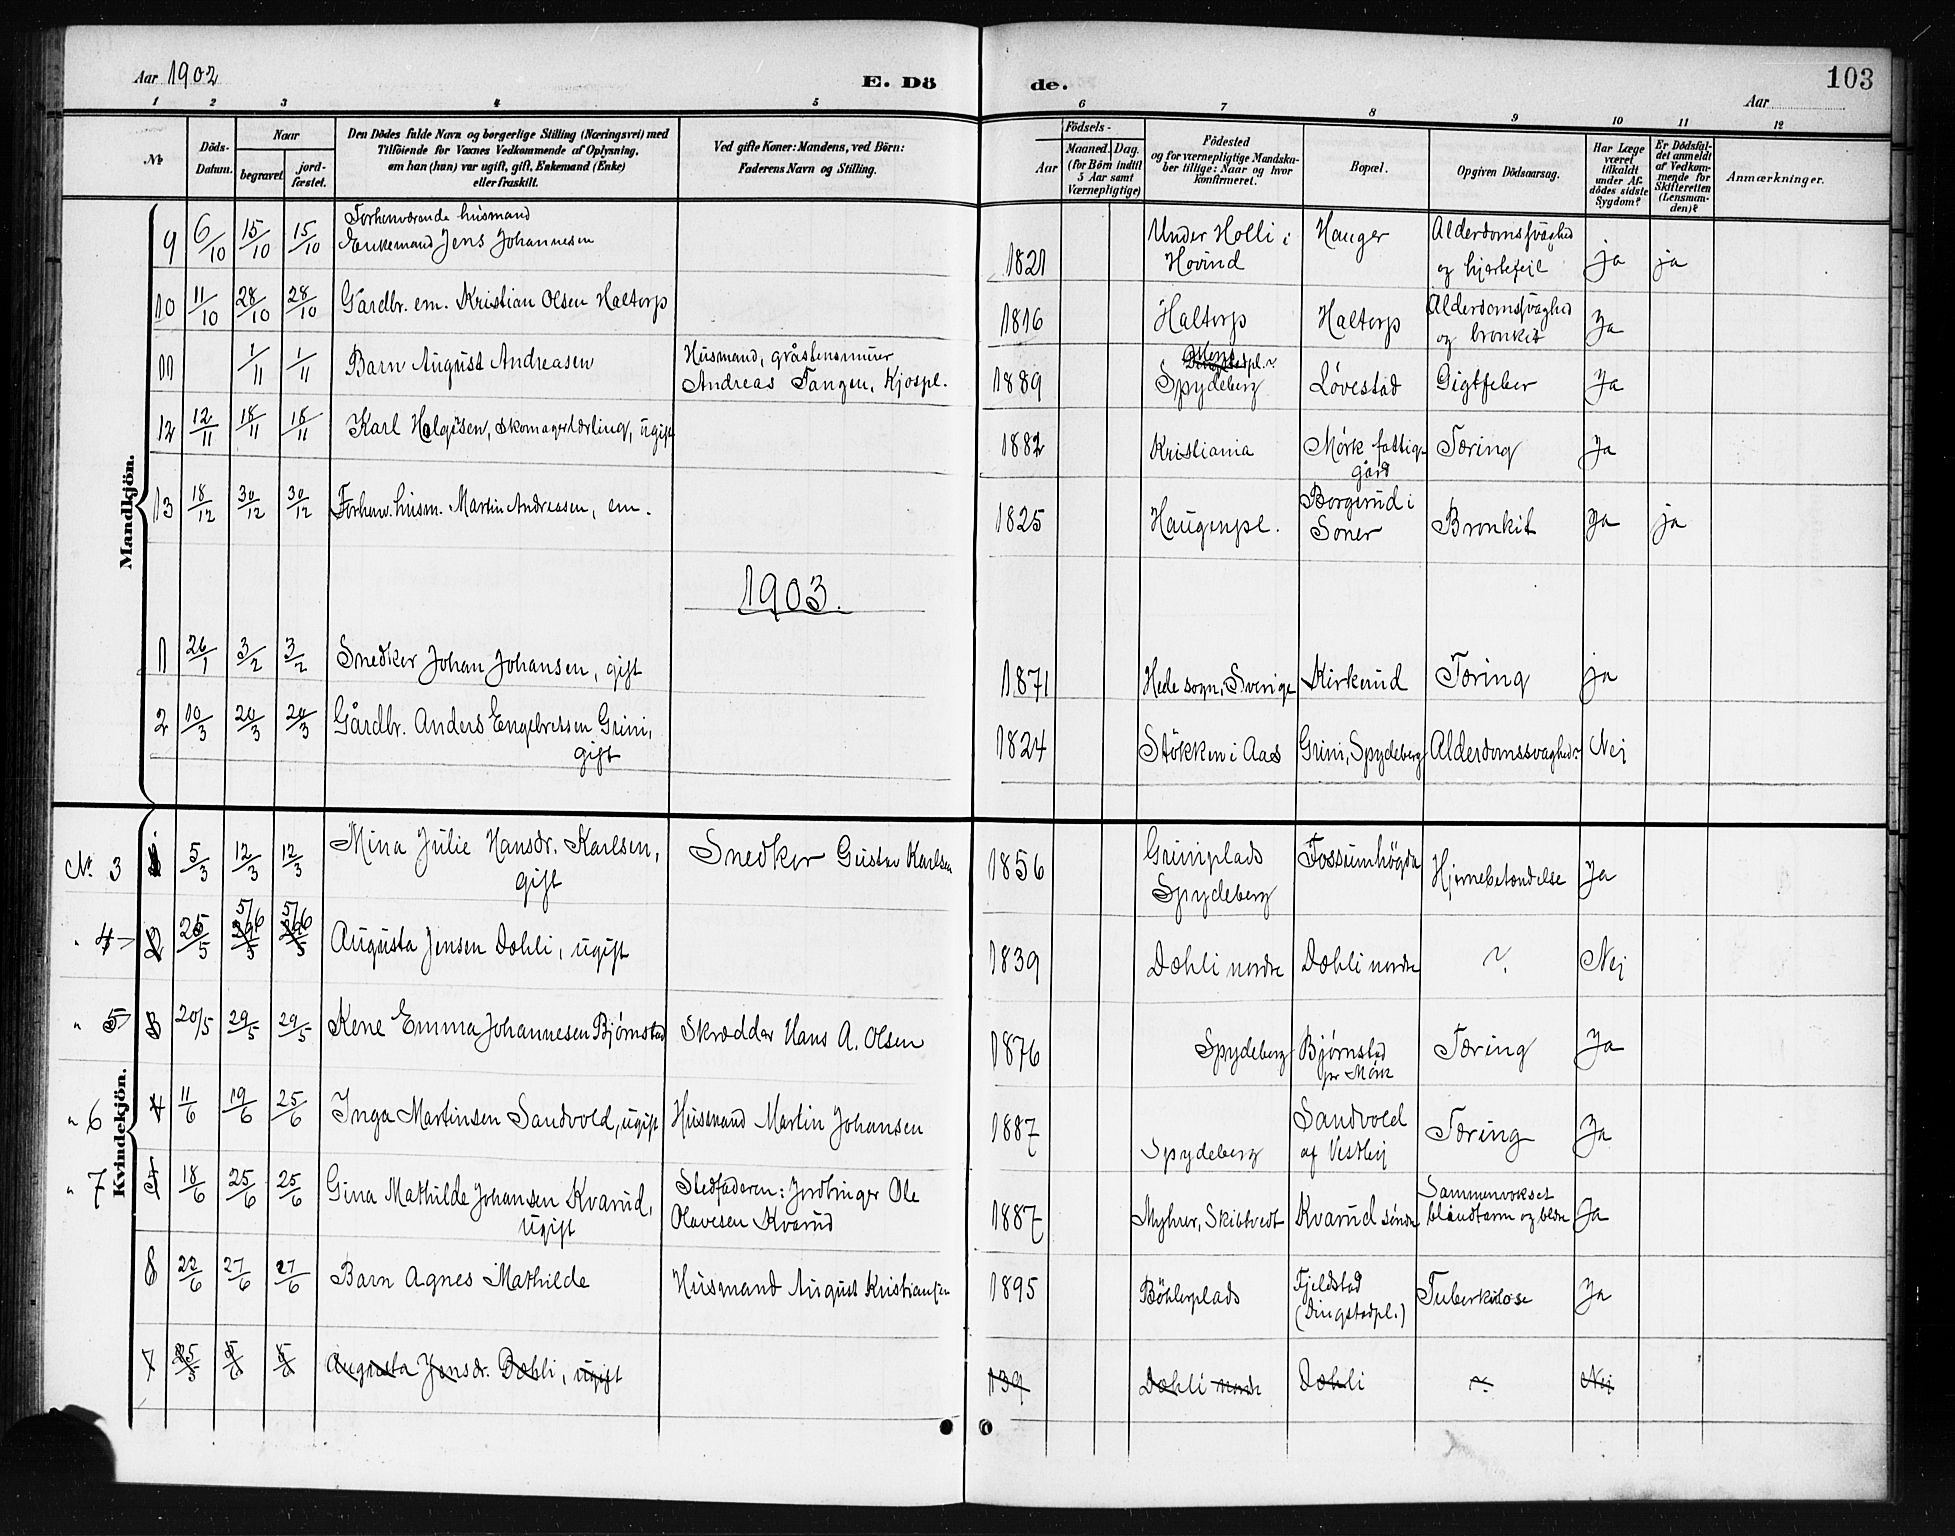 Aar 1902
E. Dö
de.
103
Aar
1 2 3 4 5 6 7 8 9 10 11 12
No
Döds-Datum.
Naar
begravet
jord-fæstet.
Den Dödes fulde Navn og borgerlige Stilling (Næringsvei) med
Tilföiende for Voxnes Vedkommende af Oplysning,
om han (hun) var ugift, gift, Enkemand (Enke)
eller fraskilt.
Ved gifte Koner: Mandens, ved Börn:
Faderens Navn og Stilling.
Födsels-
Aar
Maaned. Dag.
(for Börn indtil
5 Aar samt
Værnepligtige)
Födested
og for værnepligtige Mandska-
ber tillige: Naar og hvor
konfirmeret.
Bopæl.
Opgiven Dödsaarsag.
Har Læge
været
tilkaldt
under Af-
dödes sidste
Sygdom?
Er Dödsfal-
det anmeldt
af Vedkom-
mende for
Skifteretten
(Lensman-
den)?
Anmærkninger.
Mandkjön.
Forhenværende husmand
9 6/10 15/10 15/10 Enkemand Jens Johannesen 1821 Under Holli i Hovind Hauger Alderdomssvaghed og hjertefeil ja ja
10 11/10 28/10 28/10 Gårdbr. em. Kristian Olsen Haltorp 1816 Haltorp Haltorp Alderdomssvaghed og bronkit Ja
11 1/11 1/11 Barn August Andreasen Husmand, gråstensmurer Andreas Tangen, Kjospl. 1889 Spydeberg Løvestad Gigtfeber Ja
12 12/11 18/11 18/11 Karl Helgesen, skomagerlærling, ugift 1882 Kristiania Mörk fattiggård Tæring Ja
13 18/12 30/12 30/12 Forhenv. husm. Martin Andreasen, em. 1825 Haugenpl. Borgerud i Soner Bronkit Ja ja
1903.
1 26/1 3/2 3/2 Snedker Johan Johansen, gift 1871 Hede sogn, Sverige Kirkerud Tæring ja
2 10/3 20/3 20/3 Gårdbr. Anders Engebretsen Grini, gift 1824 Stökken i Aas Grini, Spydeberg Alderdomssvaghed Nej
Kvindekjön.
No. 3 5/3 12/3 12/3 Mina Julie Hansdr. Karlsen, gift Snedker Gustav Karlsen 1856 Griniplads Spydeberg Fossumhögda Hjernebetændelse Ja
" 4 2 25/5 5/6 5/6 Augusta Jensen Dæhli, ugift 1839 Dæhli nordre Dæhli nordre ?. Nej
" 5 3 20/5 29/5 29/5 Kene Emma Johannesen Bjørnstad Skrædder Hans A. Olsen 1876 Spydeberg Bjørnstad pr Mörk Tæring Ja
" 6 4 11/6 19/6 25/6 Inga Martinsen Sandvold, ugift Husmand Martin Johansen 1887 Spydeberg Sandvold af Vestby Tæring Ja
" 7 18/6 25/6 25/6 Gina Mathilde Johansen Kvarud, ugift Stedfaderen: Jordbruger Ole Olavesen Kvarud 1887 Myhrer, Skibtvedt Kvarud søndre Sammenvokset blindtarm og blære Ja
8 22/6 27/6 27/6 Barn Agnes Mathilde Husmand August Kristiansen 1895 Böhlerplads Fjeldstad (Dingstadpl.) Tuberkulose Ja
7 25/5 5/6 5/6 Augusta Jensdr. Dæhli, ugift 139 Dæhli nordr Dæhli ?. Nej